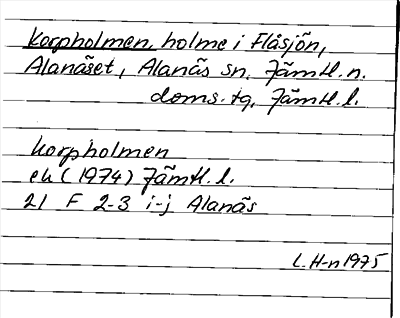 Korpholmen, holme i Flåsjön,
Alanäset, Alanäs sn, Jämtl. n.
doms. tg, Jämtl. l.
Korpholmen
ek (1974) Jämtl. l.
21 F 2-3 i-j Alanäs
L. H-n 1975